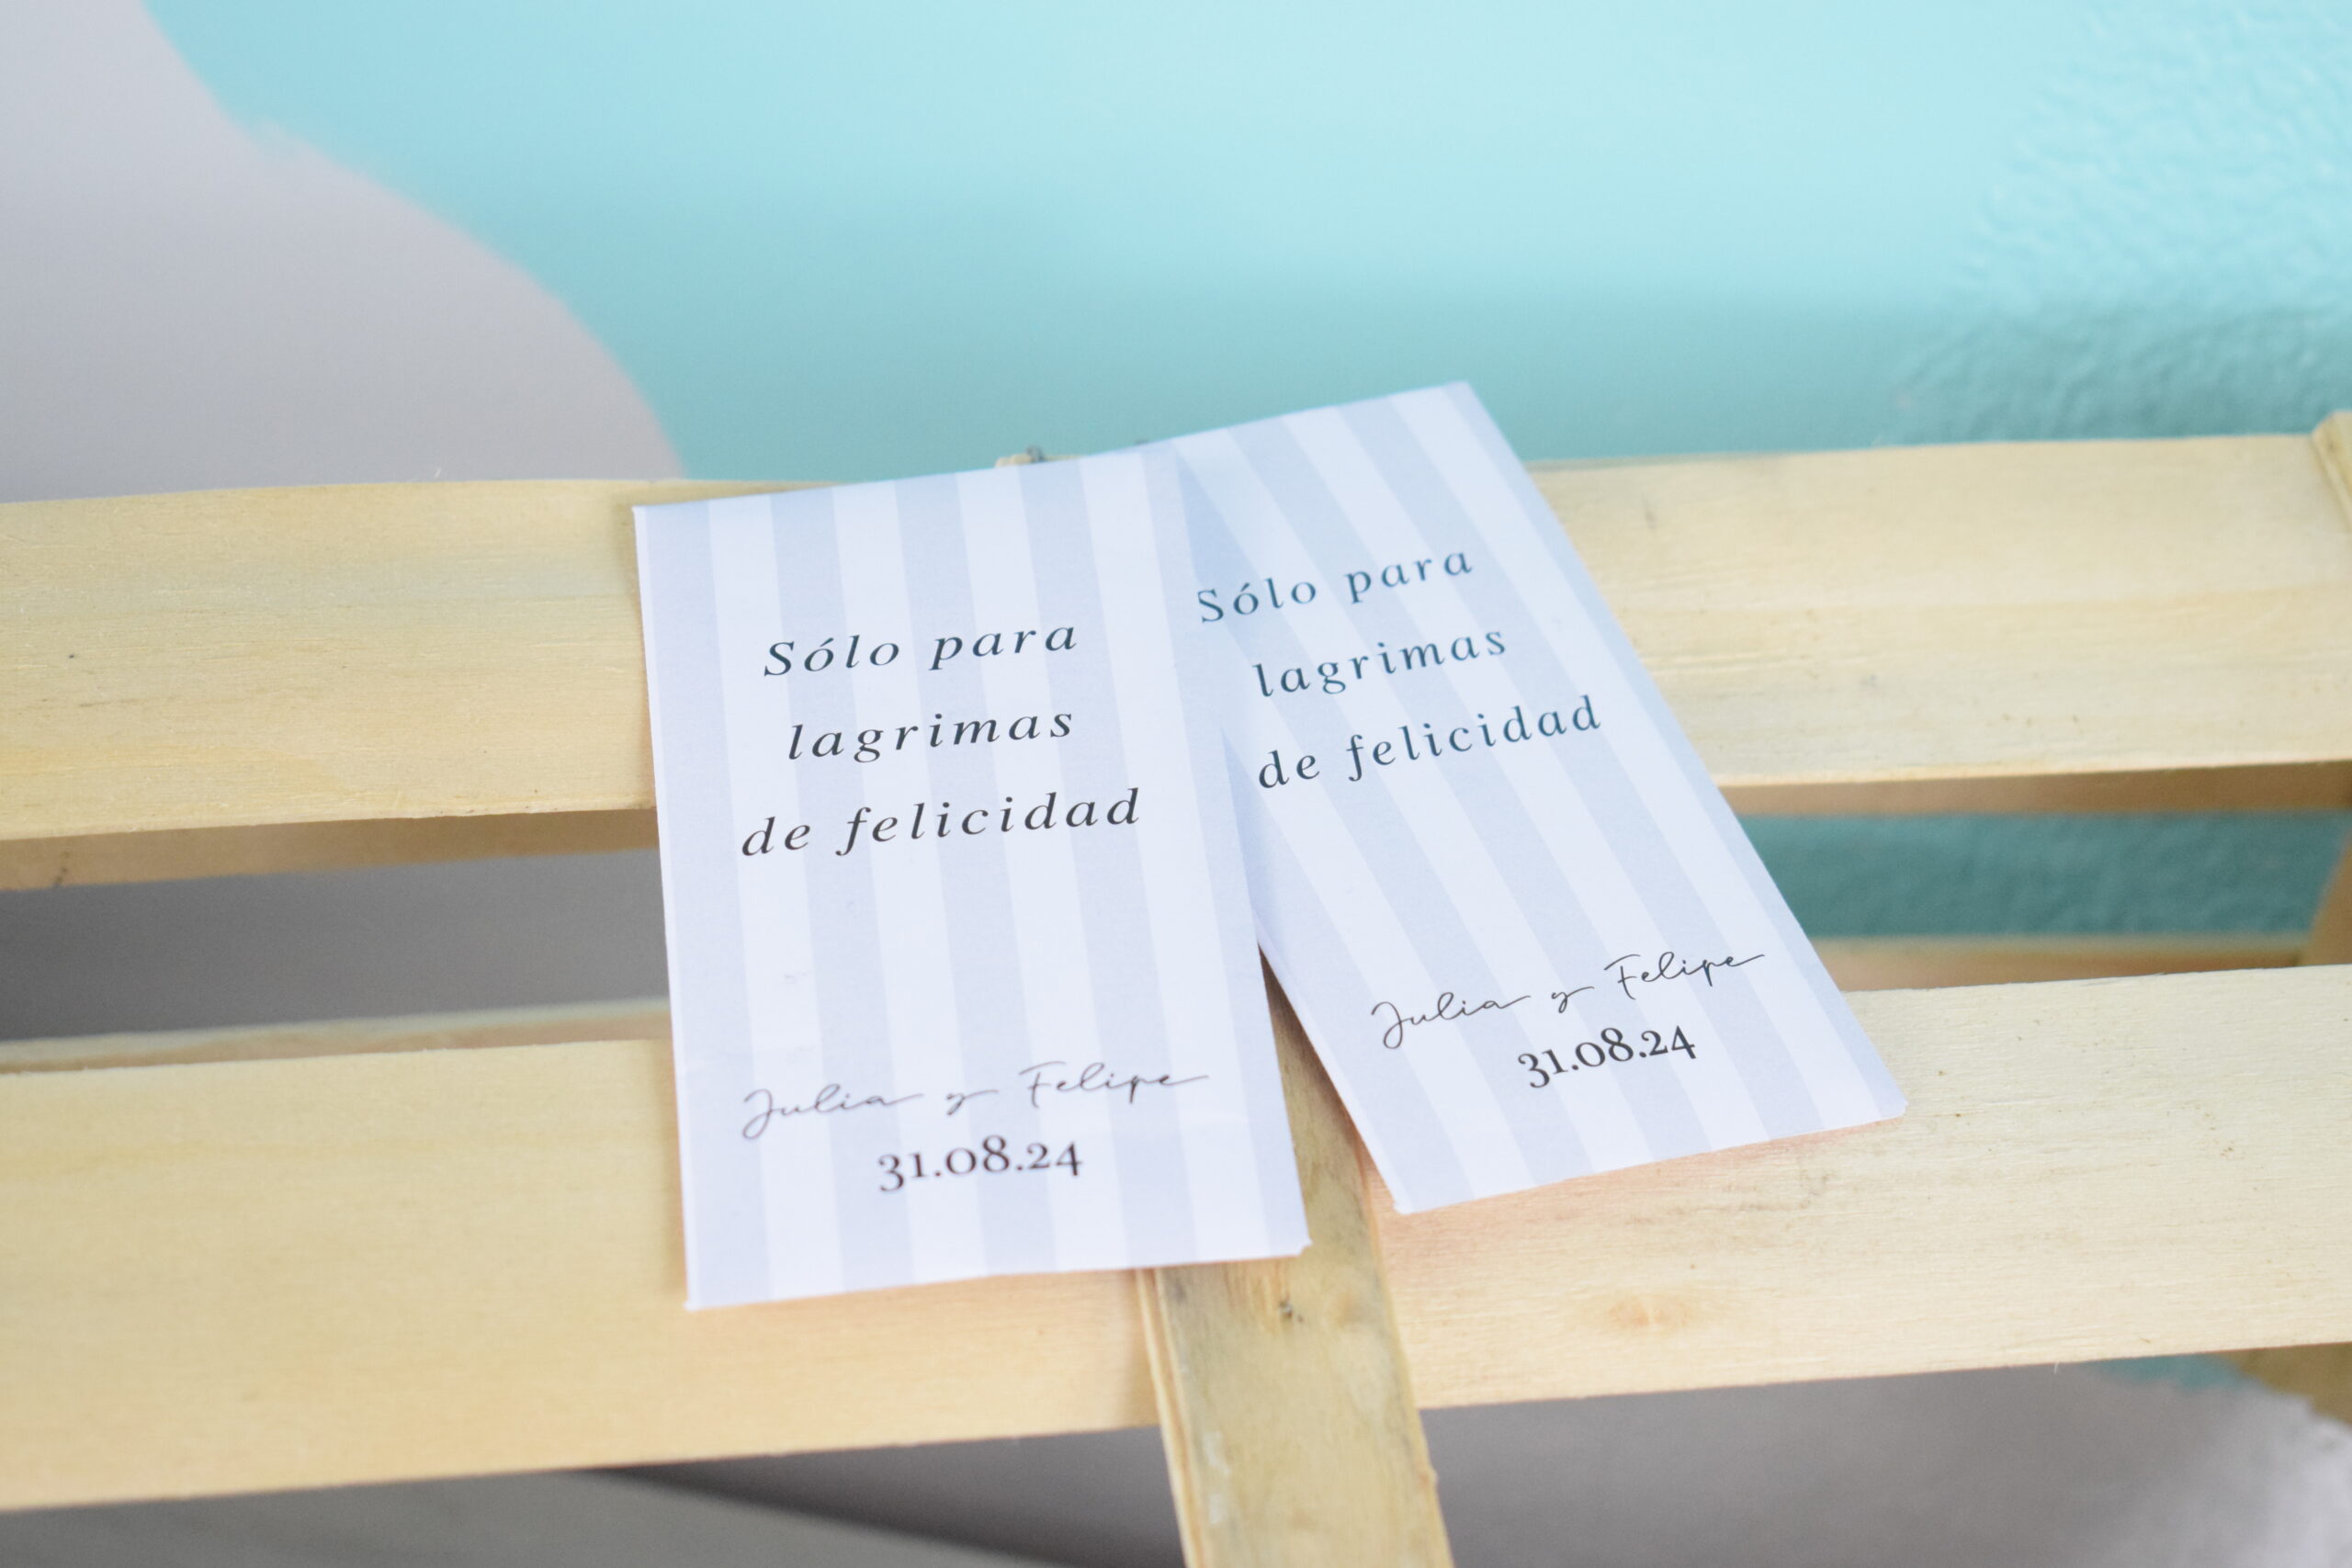 Sólo para
lagrimas
de felicidad
Julia y Felipe
31.08.24
Sólo para
lagrimas
de felicidad
Julia y Felipe
31.08.24